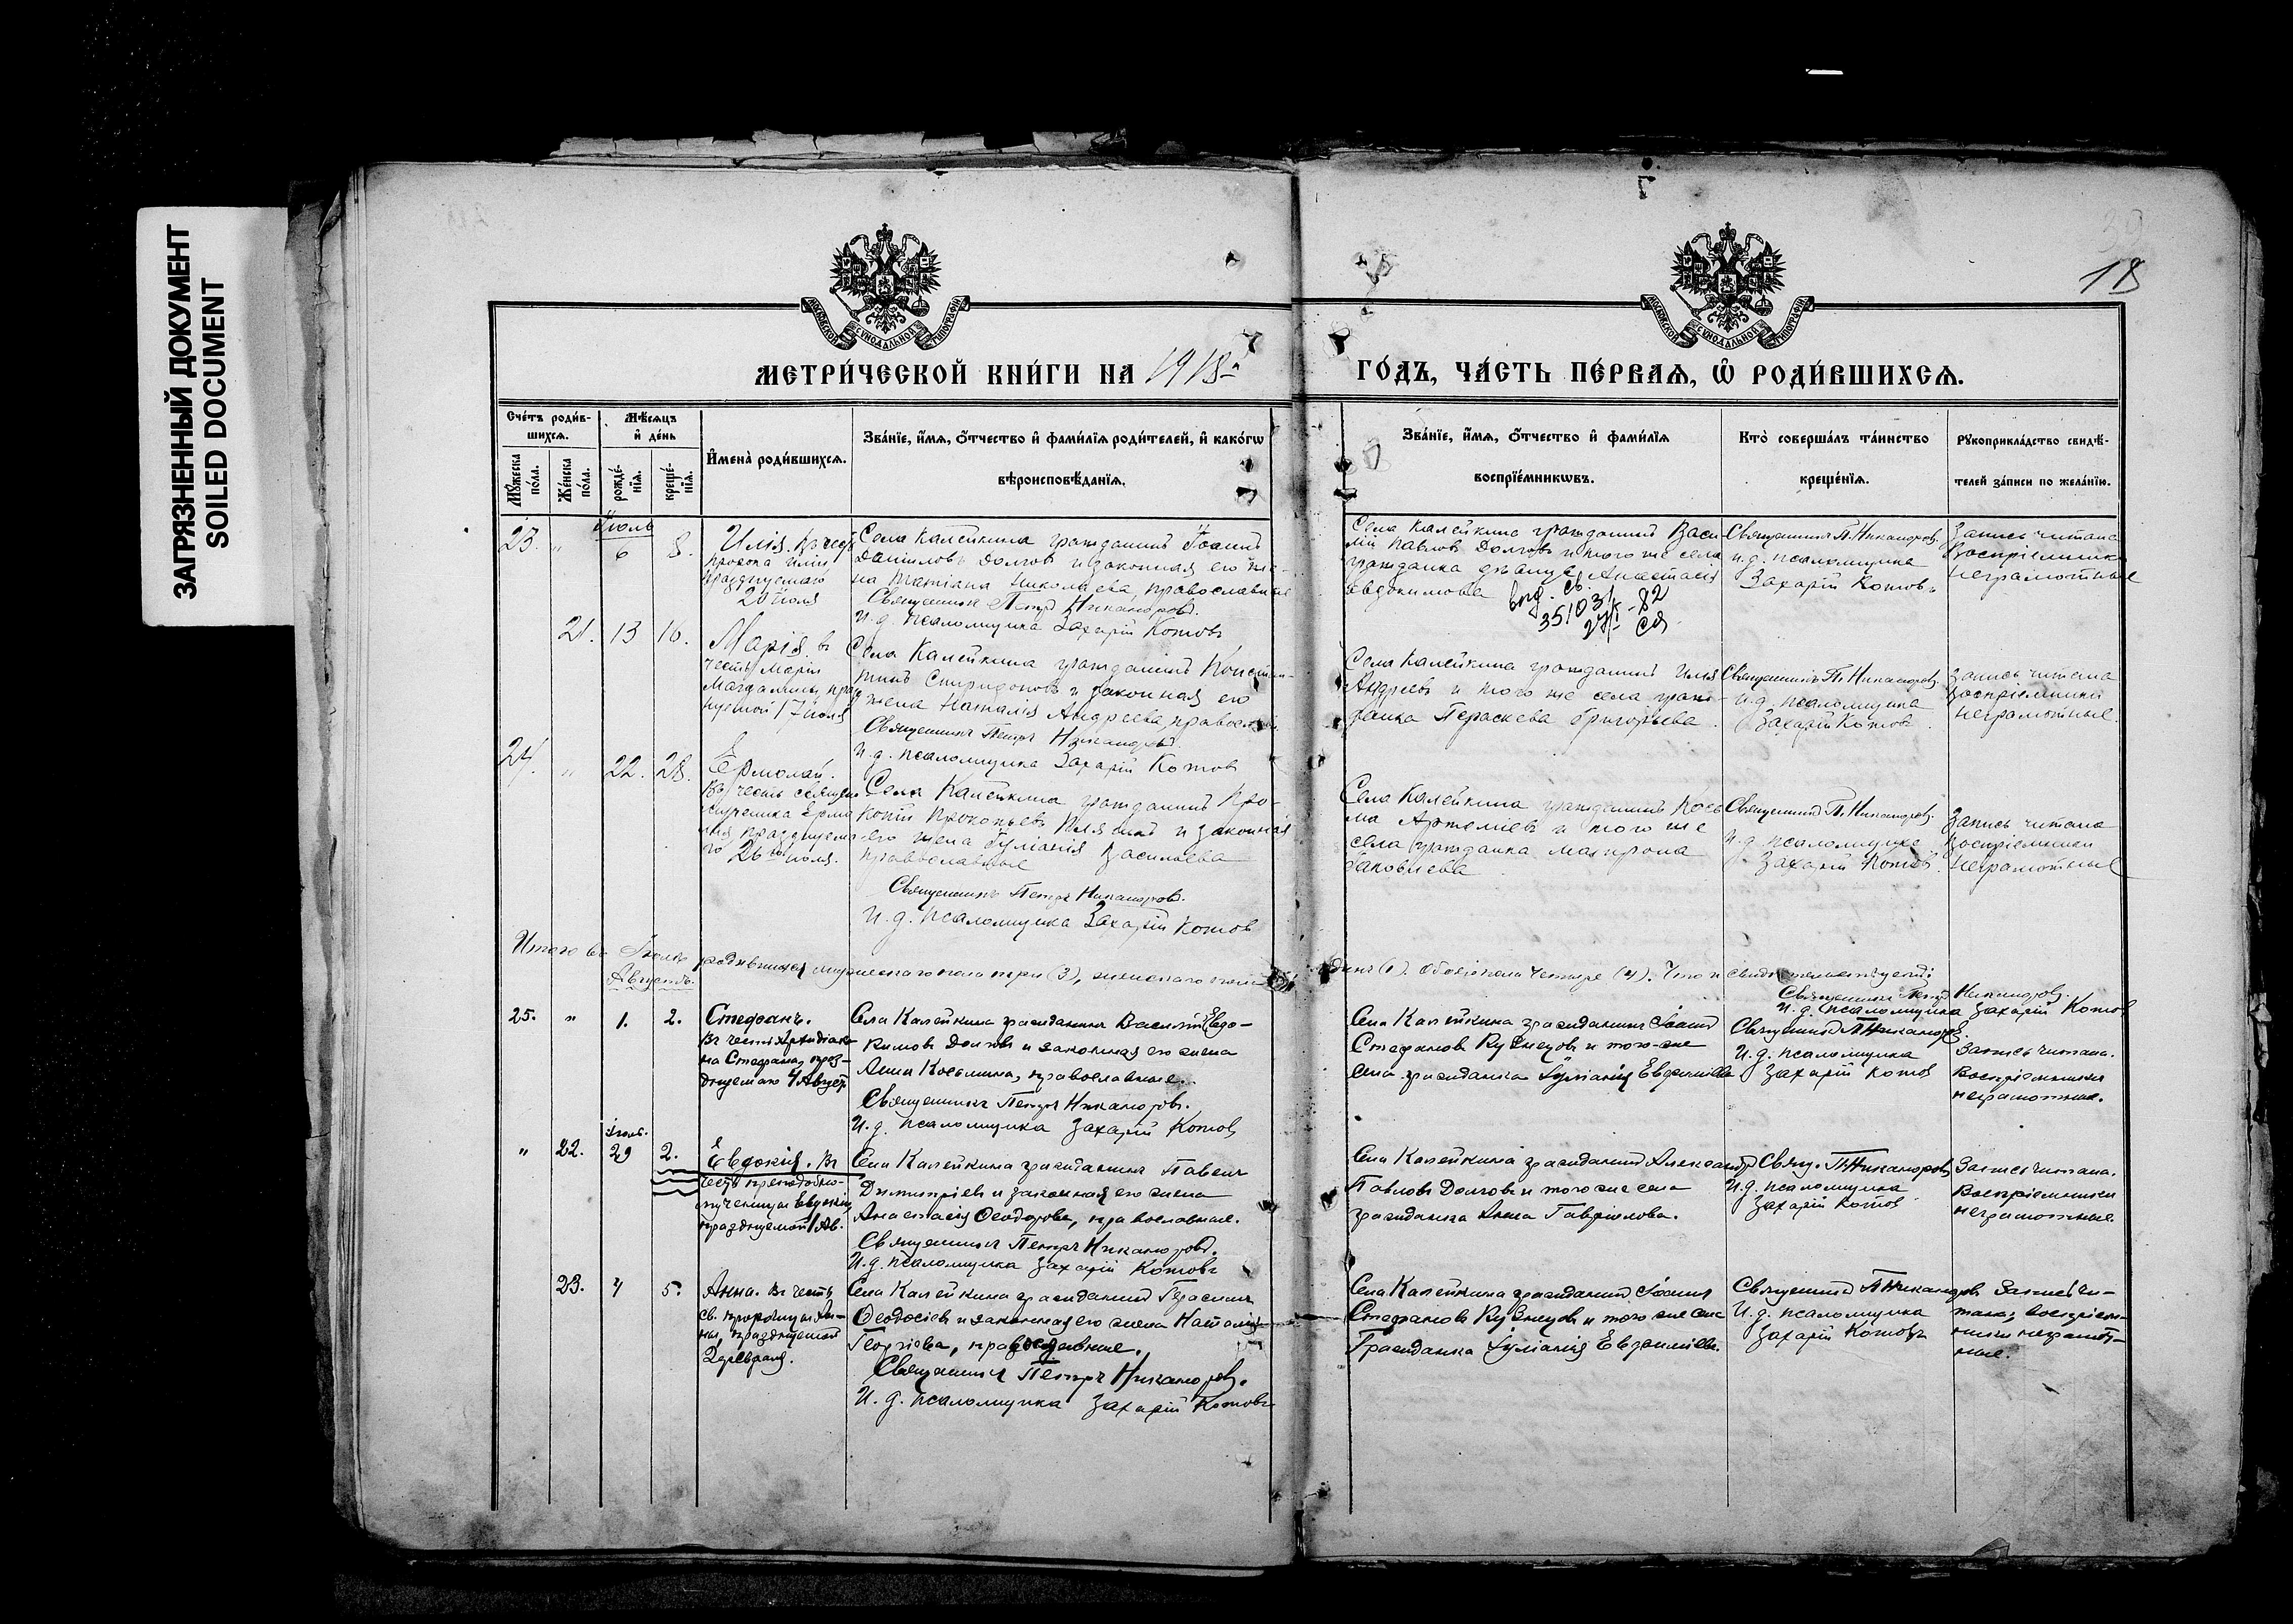 ЗАГРЯЗНЕННЫЙ ДОКУМЕНТ
SOILED DOCUMENT
18
МОСКОВСКОЙ СѴНОДАЛЬНОЙ ТИПОГРАФІИ
МОСКОВСКОЙ СѴНОДАЛЬНОЙ ТИПОГРАФІИ
МЕТРИ́ЧЕСКОЙ КНИ́ГИ НА 1918 ГО́ДЪ, ЧА́СТЬ ПЕ́РВАЯ, Ѡ РОДИ́ВШИХСЯ.
Сче́тъ роди́вшихся.
Мꙋ́жеска по́ла.
Же́нска по́ла.
Мѣ́сяцъ и҆ де́нь
рожде́нїя.
креще́нїя.
И҆мена̀ роди́вшихся.
Зва́нїе, и҆́мя, ѻ҆́тчество и҆ фами́лїя роди́телей, и҆ како́гѡ
вѣроисповѣ́данїя.
Зва́нїе, и҆́мя, ѻ҆́тчество и҆ фами́лїя
воспрїе́мникѡвъ.
Кто̀ соверша́лъ та́инство
креще́нїя.
Рꙋкоприкла́дство свидѣ́-
телей за́писи по жела́нїю.
Іюль
23. " 6 8.
Илія. Въ честь
пророка Иліи
празднуемаго
20 Іюля
Села Калейкина гражданинъ Іоаннъ
Даниловъ Долговъ и законная его же-
на Татіана Николаева, православные
Священникъ Петръ Никаноровъ.
И. д. псаломщика Захарій Котовъ
Села Калейкина гражданинъ Васи
лій Павловъ Долговъ и того же села
гражданка дѣвица Анастасія
Евдокимова
Священникъ П. Никаноровъ.
и. д. псаломщика
Захарій Котовъ.
Запись читана
Воспріемники
неграмотные
21. 13 16.
Марія. въ
честь Маріи
Магдалины, праз
Села Калейкина гражданинъ Констан-
тинъ Спиридоновъ и законная его
жена Наталія Андреева, православ.
Священникъ Петръ Никаноровъ.
И. д. псаломщика Захарій Котов
Села Калейкина гражданинъ Илія
Андреевъ и того же села граж-
данка Параскева Григорьева.
Священникъ П. Никаноровъ.
и. д. псаломщика
Захарій Котовъ
Запись читана
Воспріемники
неграмотные.
24. " 22. 28.
Ермолай.
Въ честь священ-
мученика Ермо
лая празднуема-
го 26 Іюля.
Села Калейкина гражданинъ Про-
копій Прокопьевъ и законная
его жена Іуліанія Васильева
православные
Священникъ Петръ Никаноровъ.
И. д. псаломщика Захарій Котов
Села Калейкина гражданинъ Кось
ма Артеміевъ и того же
села гражданка Матрона
Іаковлева
Священникъ П. Никаноровъ.
и. д. псаломщика
Захарій Котов.
Запись читана
Воспріемники
неграмотные
Итого въ Іюлѣ родившихся мужескаго пола три (3), женскаго пола одинъ (1). Обоего пола четыре (4). Что и свидѣтельствуемъ:
Священникъ Петръ Никаноровъ.
И. д. псаломщика Захарій Котов
Августъ.
25. " 1. 2.
Стефанъ.
Въ честь Архидіако-
на Стефана, праз-
днуемаго 4 Август.
Села Калейкина гражданинъ Василій Евдо-
кимовъ Долговъ и законная его жена
Анна Косьмина, православные.
Священникъ Петръ Никаноровъ.
И. д. псаломщика Захарій Котов
Села Калейкина гражданинъ Іоаннъ
Стефановъ Кузнецовъ и того-же
села гражданка Іуліанія Евфиміева
Священникъ П. Никаноровъ
И. д. псаломщика
Захарій Котов
Запись читана.
Воспріемники
неграмотные.
Іюль.
" 22. 29 2.
Евдокія. Въ
честь преподобно-
мученицы Евдокіи,
празднуемой 1 Ав.
Села Калейкина гражданинъ Павелъ
Димитріевъ и законная его жена
Анастасія Ѳеодорова, православные.
Священникъ Петръ Никаноровъ.
И. д. псаломщика Захарій Котовъ
Села Калейкина гражданинъ Александръ
Павловъ Долговъ и того же села
гражданка Анна Гавріилова.
Свящ. П. Никаноровъ
И. д. псаломщика
Захарій Котов
Запись читана.
Воспріемники
неграмотные.
23. 4 5.
Анна. Въ честь
св. пророчицы Ан-
ны, празднуемой
Села Калейкина гражданинъ Герасимъ
Ѳеодосіевъ и законная его жена Наталія
Георгіева, православные.
Священникъ Петръ Никаноровъ.
И. д. псаломщика Захарій Котовъ
Села Калейкина гражданинъ Іоаннъ
Стефановъ Кузнецовъ и того же села
Гражданка Іуліанія Евфиміева.
Священникъ П. Никаноровъ
И. д. псаломщика
Захарій Котовъ
Запись чи-
тана; воспріем-
ники неграмот-
ные.